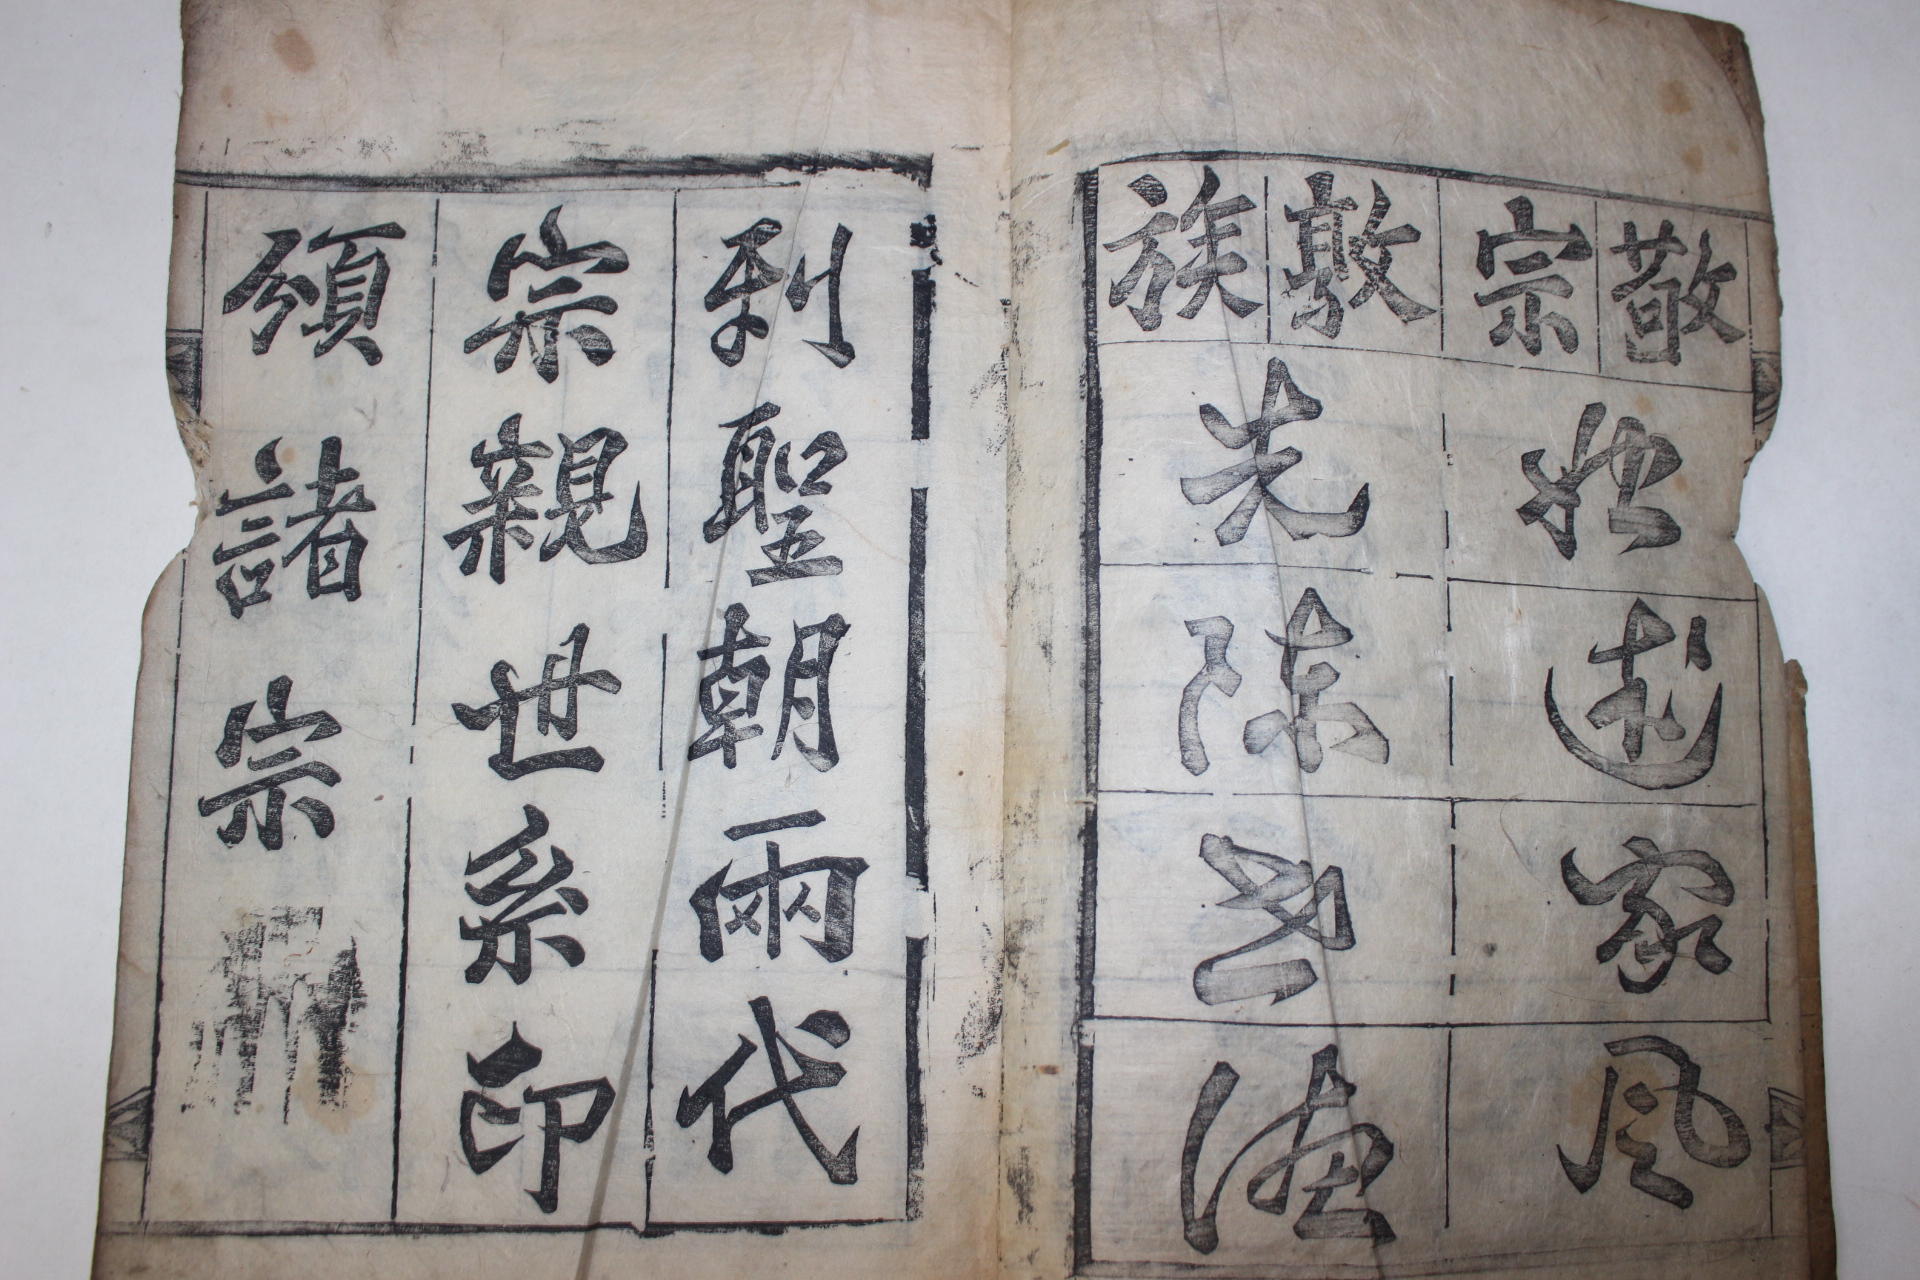 敬宗
敦族
始述家風
先陳世德
列聖朝兩代
宗親世系印
頒諸宗